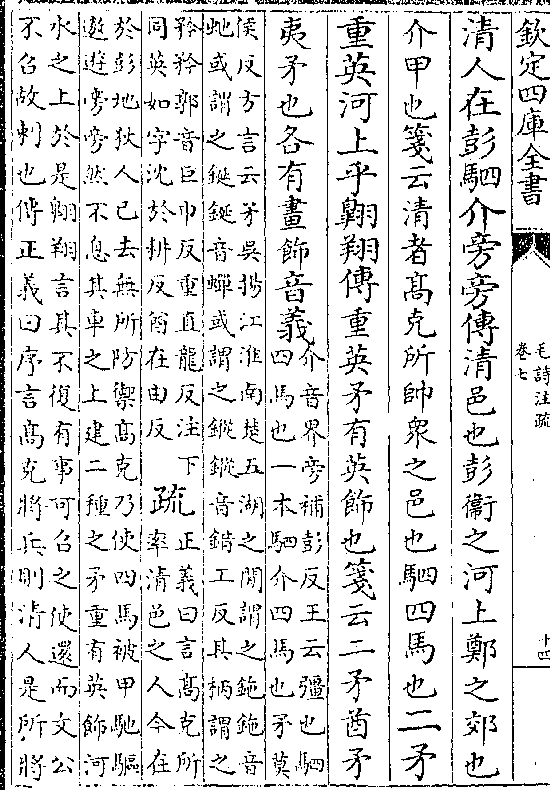 欽定四庫全書
毛詩注疏
卷七
十四
清人在彭駟介旁旁傳清邑也彭衞之河上鄭之郊也
介甲也箋云清者髙克所帥衆之邑也駟四馬也二矛
重英河上乎翺翔傳重英矛有英飾也箋云二矛酋矛
夷矛也各有畫飾音義
介音界旁補彭反王云彊也駟
四馬也一本駟介四馬也矛莫
侯反方言云矛吳揚江淮南楚五湖之閒謂之鉇鉇音
虵或謂之鋋鋋音蟬或謂之鏦鏦音錯工反其柄謂之
矜矜郭音巨巾反重直龍反注下
同英如字沈於耕反酋在由反
疏
正義曰言髙克所
率清邑之人今在
於彭地狄人已去無所防禦髙克乃使四馬被甲馳驅
遨遊旁旁然不息其車之上建二種之矛重有英飾河
水之上於是翺翔言其不復有事可召之使還而文公
不召故刺也傳正義曰序言髙克將兵則清人是所將